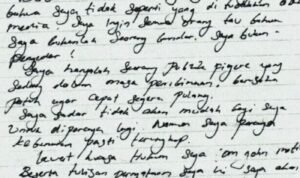 bahwa saya tidak seperti yang di tuduhkan oleh
media. Saya Ingin semua orang tau bahwa
Saya bukanlah Seorang bandar. Saya bukan
pengedar!
Saya hanyalah Seorang Publik figure yang
sedang dalam masa
yang cepat segera pulang.
Saya sadar tidak akan mudah bagi saya
untuk di percaya lagi. Namun Saya percaya
kebenaran pasti terungkap.
Lewat kuasa Hukum Saya
Beserta tulisan pernyataan Saya ini saya akan